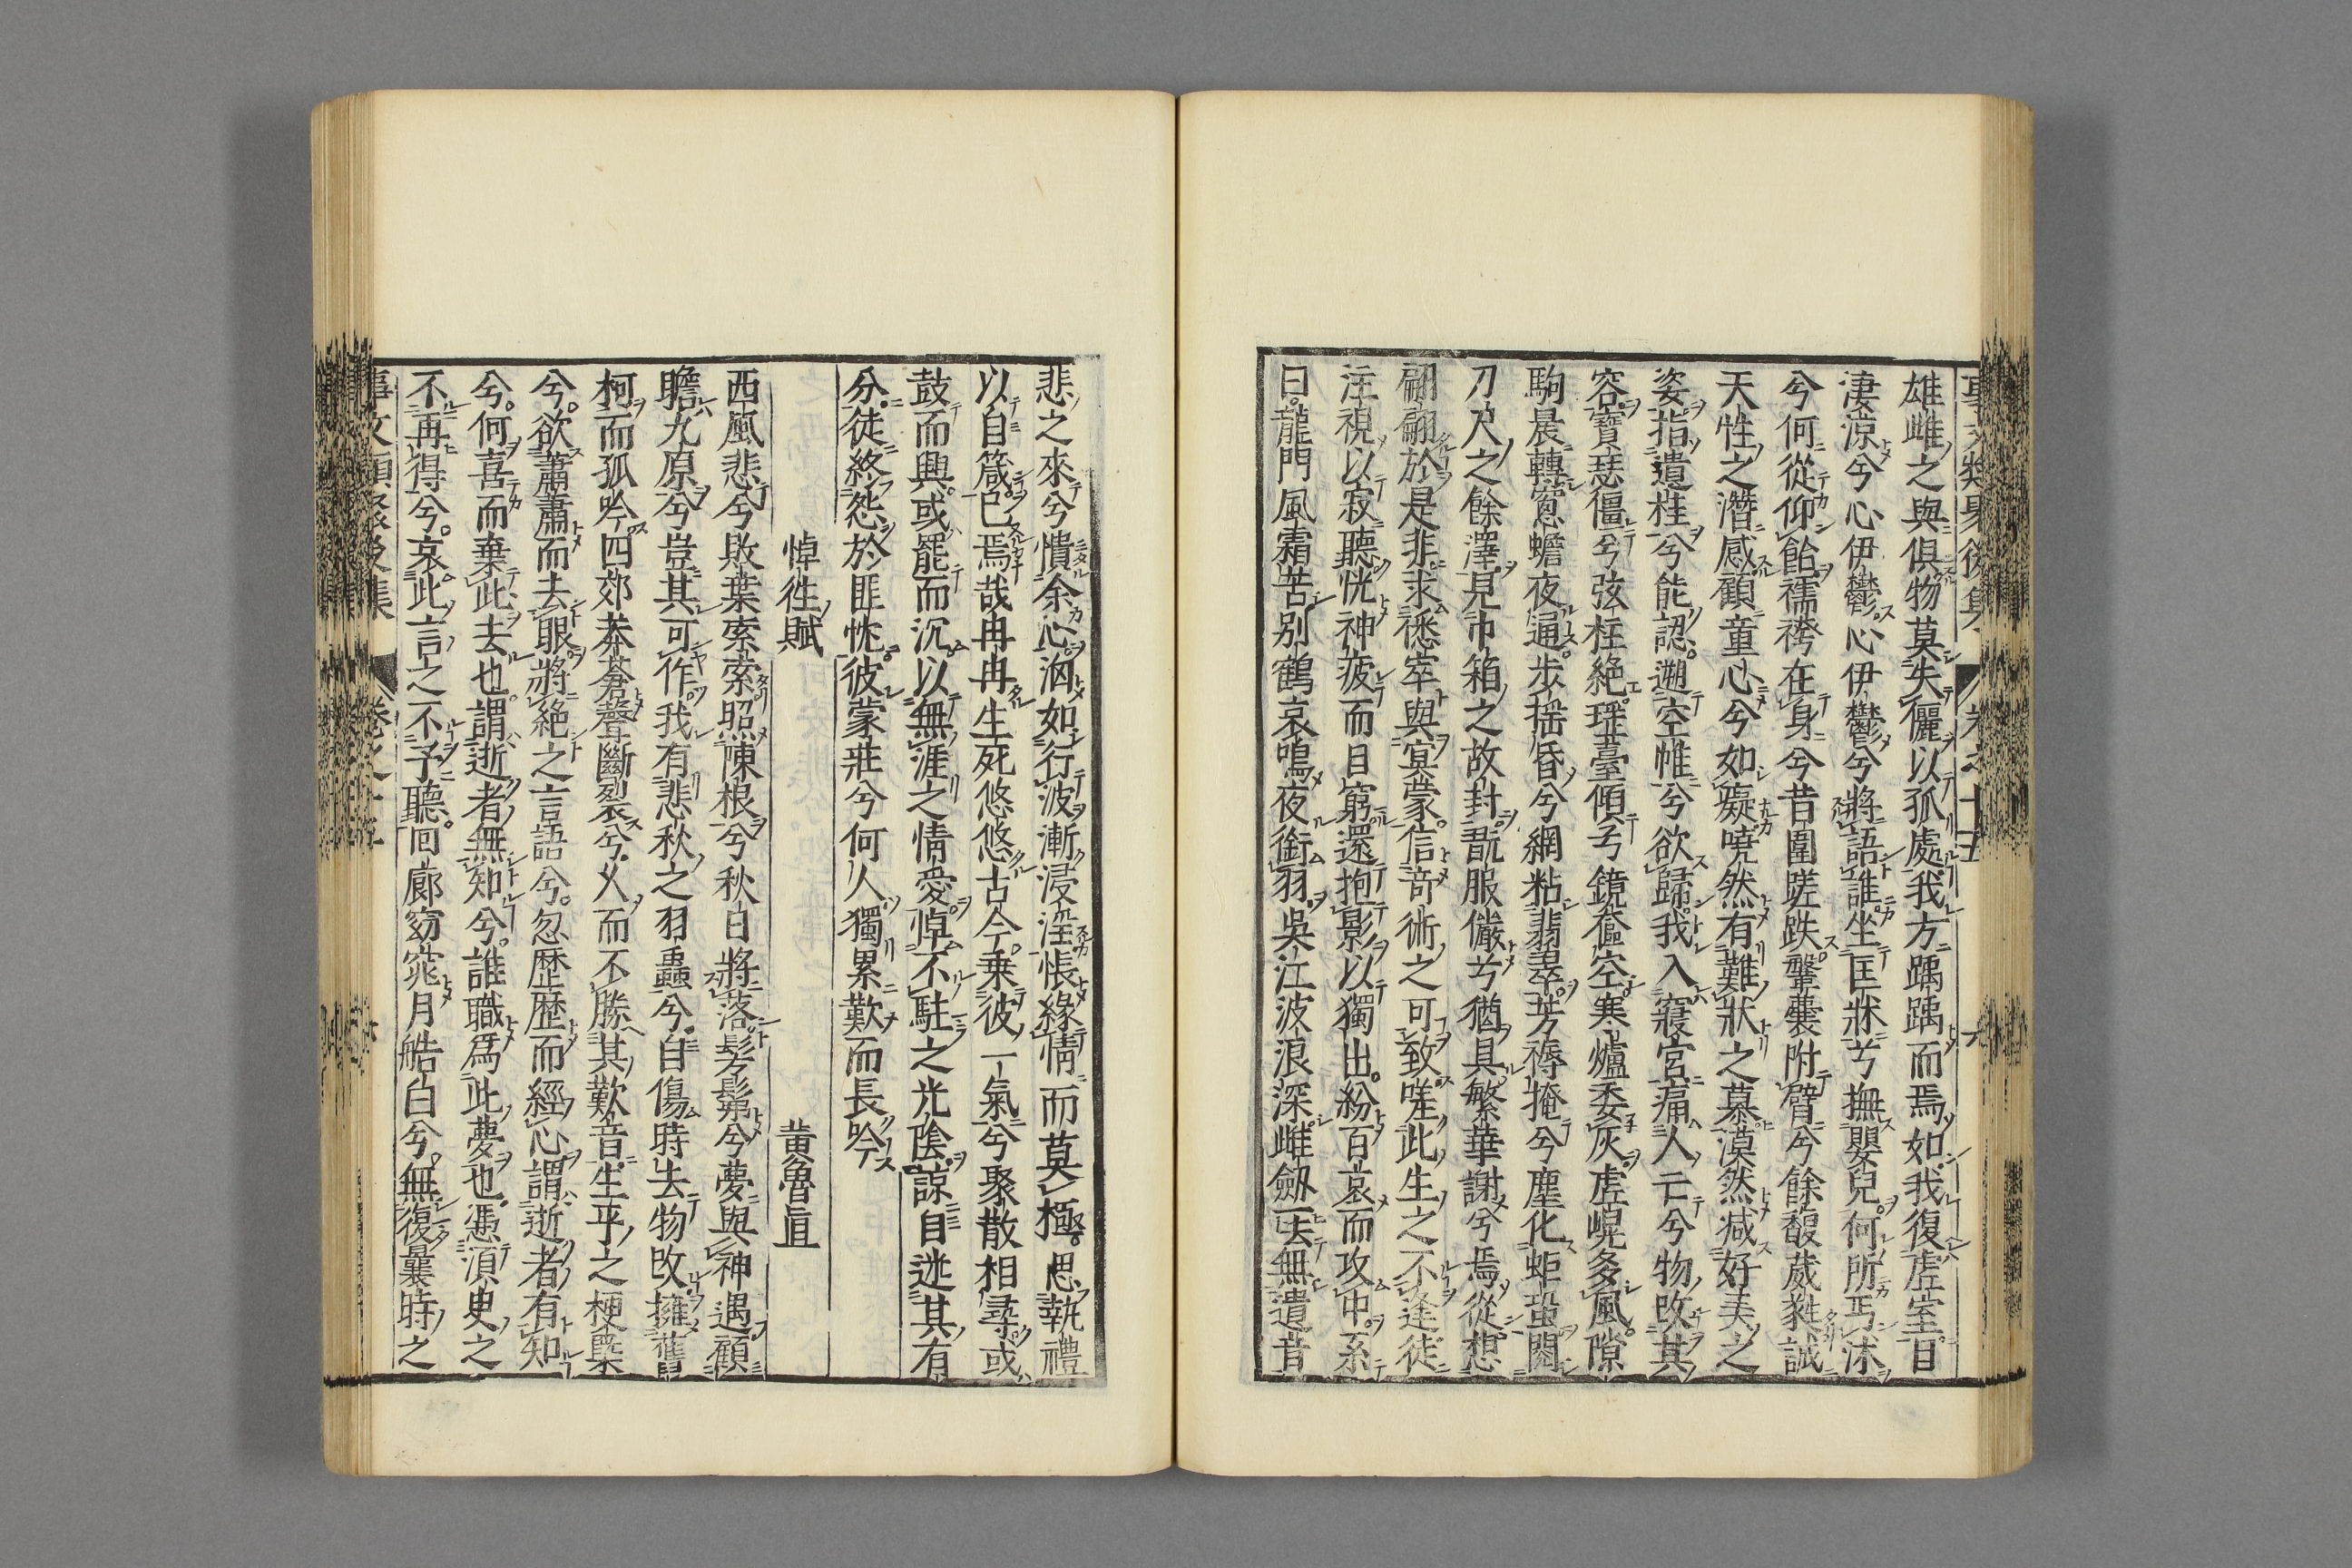 事文類聚後集 卷之十五 六
雄雌之與俱物莫失儷以孤處我方踽踽而焉如我復虛室日
凄涼兮心伊鬱心伊鬱兮將語誰坐匡牀兮撫嬰兒何所丐沐
兮何從仰飴襦袴在身兮昔圍蹉跌鞶囊附臂兮餘馥葳蕤誠
天性之潛感顧童心兮如癡曉然有難狀之慕漠然減好美之
姿指遺桂兮能認遡空帷兮欲歸我入寢宮痛人亡兮物改其
容寶瑟僵兮弦柱絶瑶臺傾兮鏡奩空寒爐委灰虛幌多風隙
駒晨轉窻蟾夜通步揺昏兮網粘翡翠芳褥掩兮塵化蛩蛩閱
刀尺之餘澤見巾箱之故封翫服儼兮猶具繁華謝兮焉從想
翩翩於是非求㣦㣦與㝠蒙信竒術之可致嗟此生之不逢徒
注視以寂聽恍神疲而目窮還抱影以獨出紛百哀而攻中系
曰龍門風霜苦别鶴哀鳴夜銜羽吳江波浪深雌劒一去無遺音
悲之來兮憒余心洶如行波漸浸淫悵緣情而莫極思執禮
以自箴已焉哉冉冉生死悠悠古今乘彼一氣兮聚散相尋或
鼓而興或罷而沉以無涯之情愛悼不駐之光陰諒自迷其有
分徒終怨於匪忱彼蒙莊兮何人獨累歎而長吟
悼徃賦 黄魯直
西風悲兮敗葉索索照陳根兮秋日將落髣髴兮夢與神遇顧
瞻九原兮豈其可作我有悲秋之羽蟲兮自傷時去物改擁舊
柯而孤吟四郊莽蒼聲斷裂兮久而不勝其歎音生平之梗槩
兮欲蕭蕭而去眼將絶之言語兮忽歷歷而經心謂逝者有知
兮何喜而棄此去也謂逝者無知兮誰職爲此夢也慿須臾之
不再得兮哀此言之不予聽囘廊窈窕月皓白兮無復曩時之
事文類聚後集 卷之十五 六